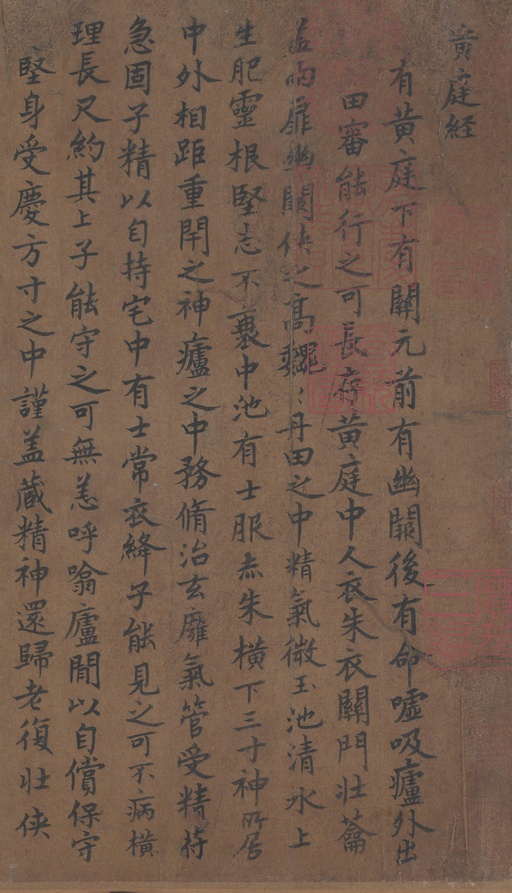 黄庭経
有黄庭下有關元前有幽闕後有命噓吸廬外出
田審能行之可長存黄庭中人衣朱衣關門壮蘥
盖兩扉幽闕俠之高巍〻丹田之中精氣微玉池清水上
生肥靈根堅志不衰中池有士服赤朱橫下三寸神所居
中外相距重閇之神廬之中務脩治玄廱氣管受精苻
急固子精以自持宅中有士常衣絳子能見之可不病橫
理長尺約其上子能守之可無恙呼噏廬間以自償保守
堅身受慶方寸之中謹盖藏精神還歸老復壮俠